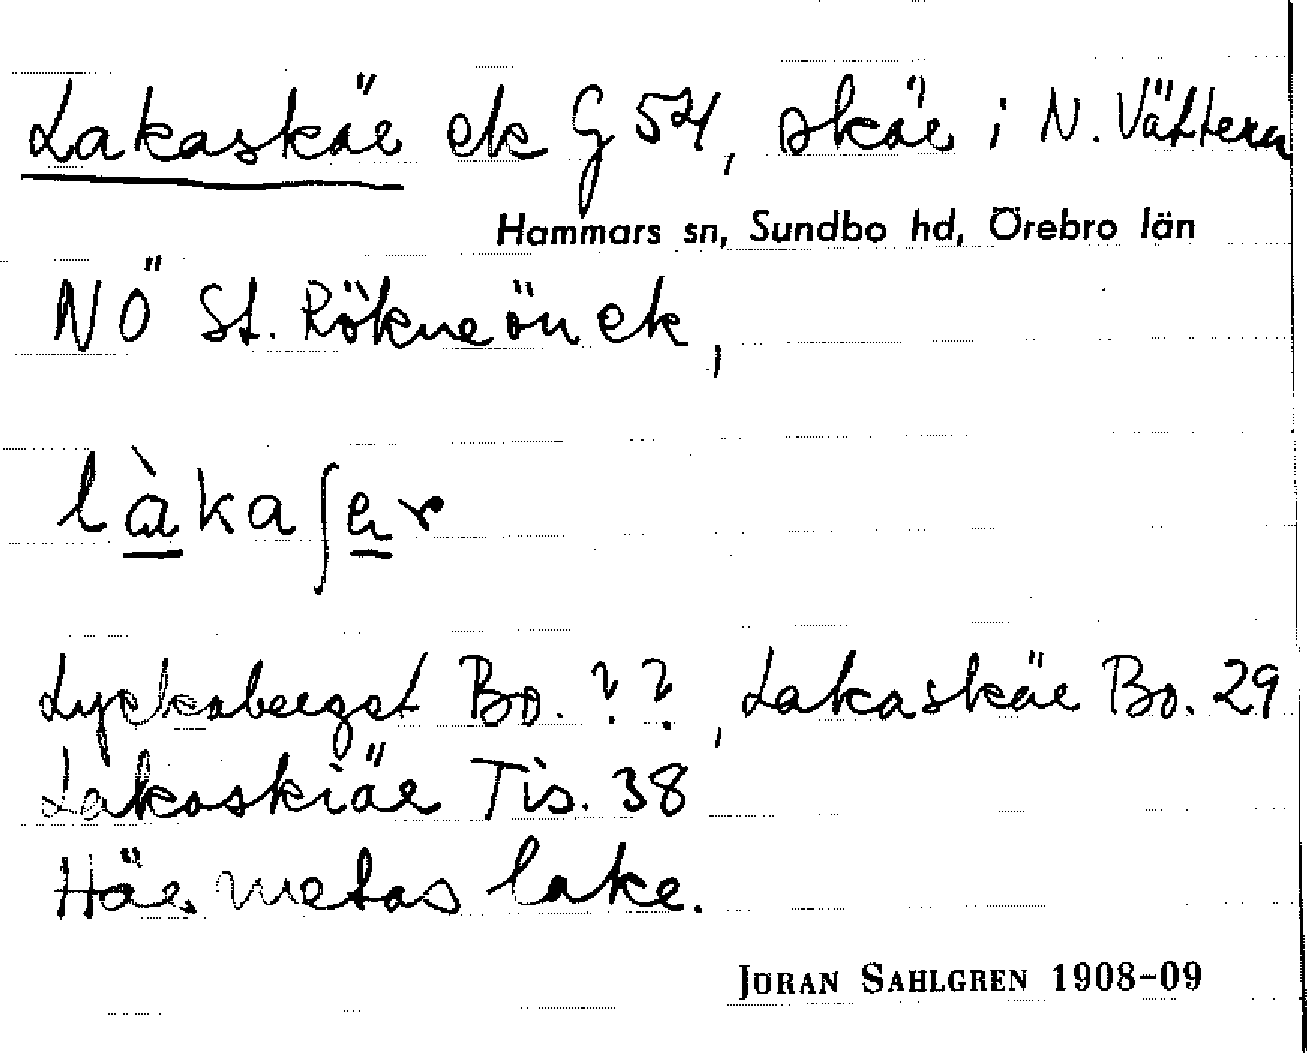 Lakaskär ek G 54, skär i N. Vättern
Hammars sn, Sundbo hd, Örebro län
NÖ St. Rökneön ek,
làkaʃer
Lyckaberget Bo. ??, Lakaskär Bo. 29
Lakaskiär Tis. 38
Här metas lake.
JÖRAN SAHLGREN 1908-09